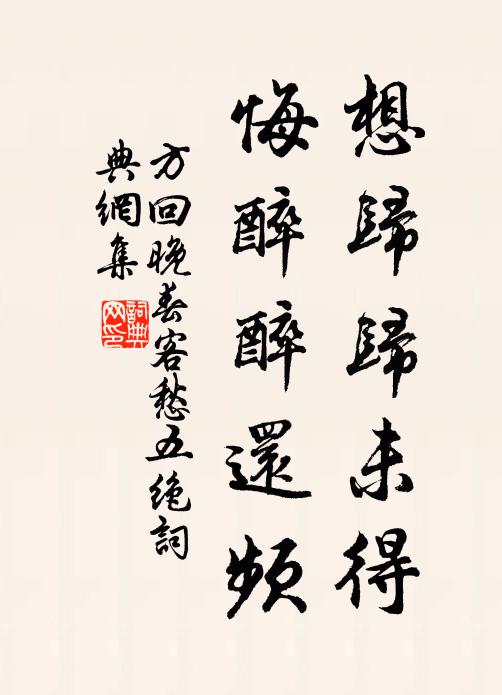 想歸歸未得
悔醉醉還頻
方回晚春客愁五絶詞
典網集
詞典
网印